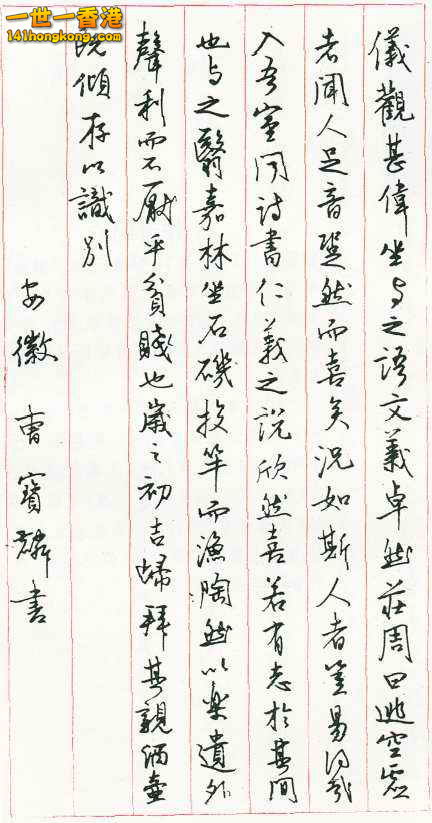 一世一香港
141hongkong.com
儀觀甚偉坐与之語文義卓然莊周曰逃空虛
者聞人足音跫然而喜矣況如斯人者豈易得哉
入吾室聞詩書仁義之說欣然喜若有志於其間
也与之翳嘉林坐石磯投竿而漁陶然以樂遺外
聲利而不厭乎貧賤也歲之初吉歸拜其親酒壺
既傾存以識別
安徽 曹寶麟書